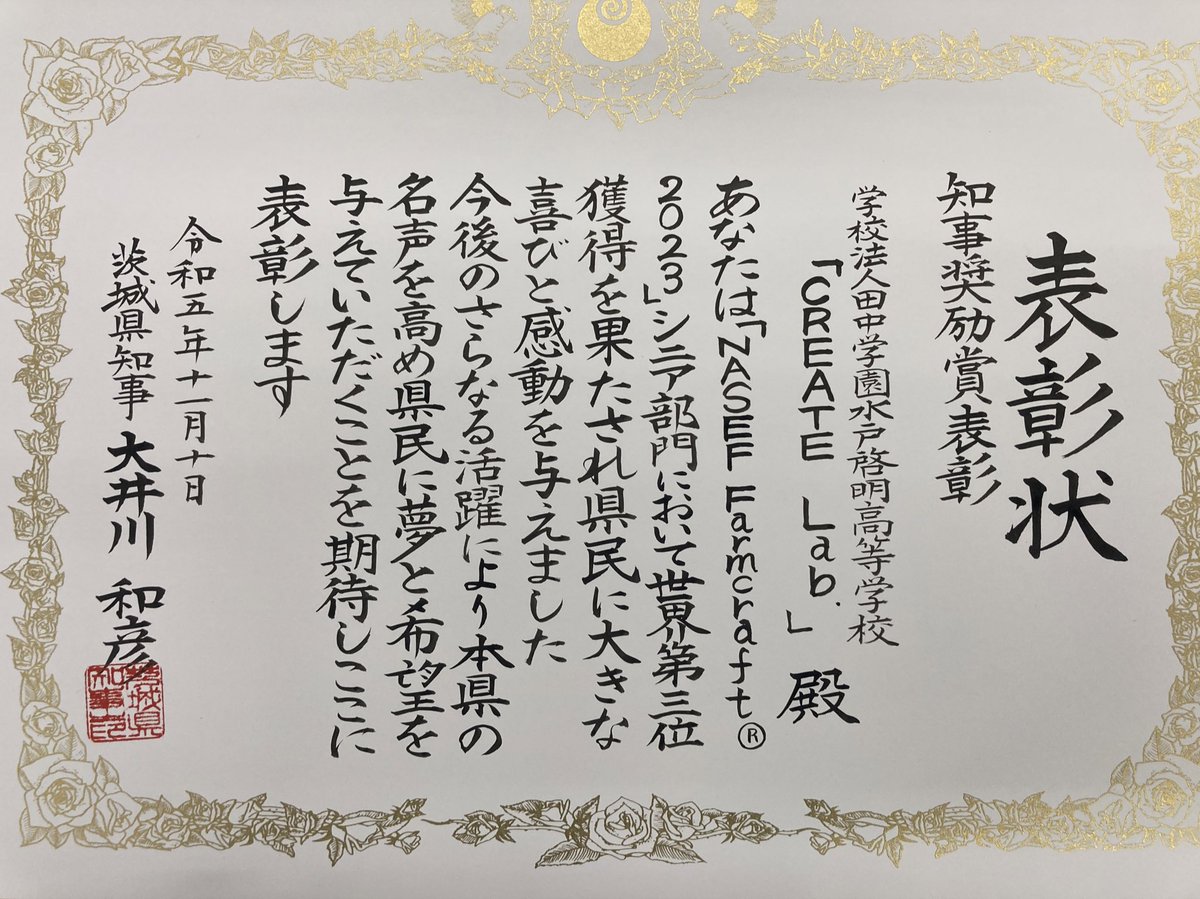 表彰状
知事奨励賞表彰
学校法人田中学園水戸啓明高等学校
「CREATE Lab.」殿
あなたは「NASEF Farmcraft®
2023」シニア部門において世界第三位
獲得を果たされ県民に大きな
喜びと感動を与えました
今後のさらなる活躍により本県の
名声を高め県民に夢と希望を
与えていただくことを期待しここに
表彰します
令和五年十一月十日
茨城県知事 大井川 和彦
茨城県
知事印